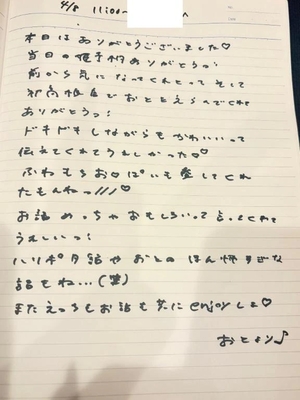 4/8 11:00〜
本日はありがとうございました♡
当日の電予約ありがとうっ!
前から気になってくれとってそして
初高松店でおとえらんでくれて
ありがとうっ!
ドキドキしながらもかわいいって
伝えてくれてうれしかった♡
ふわもちお♡ぱいも愛してくれ
たもんねっ///♡
お話めっちゃおもしろいって言ってくれて
うれしいっ!
ハリポタ話やおとのほん怖すぎな
話もね…(笑)
またえっちもお話も共にenjoyしよ♡
おとより♪